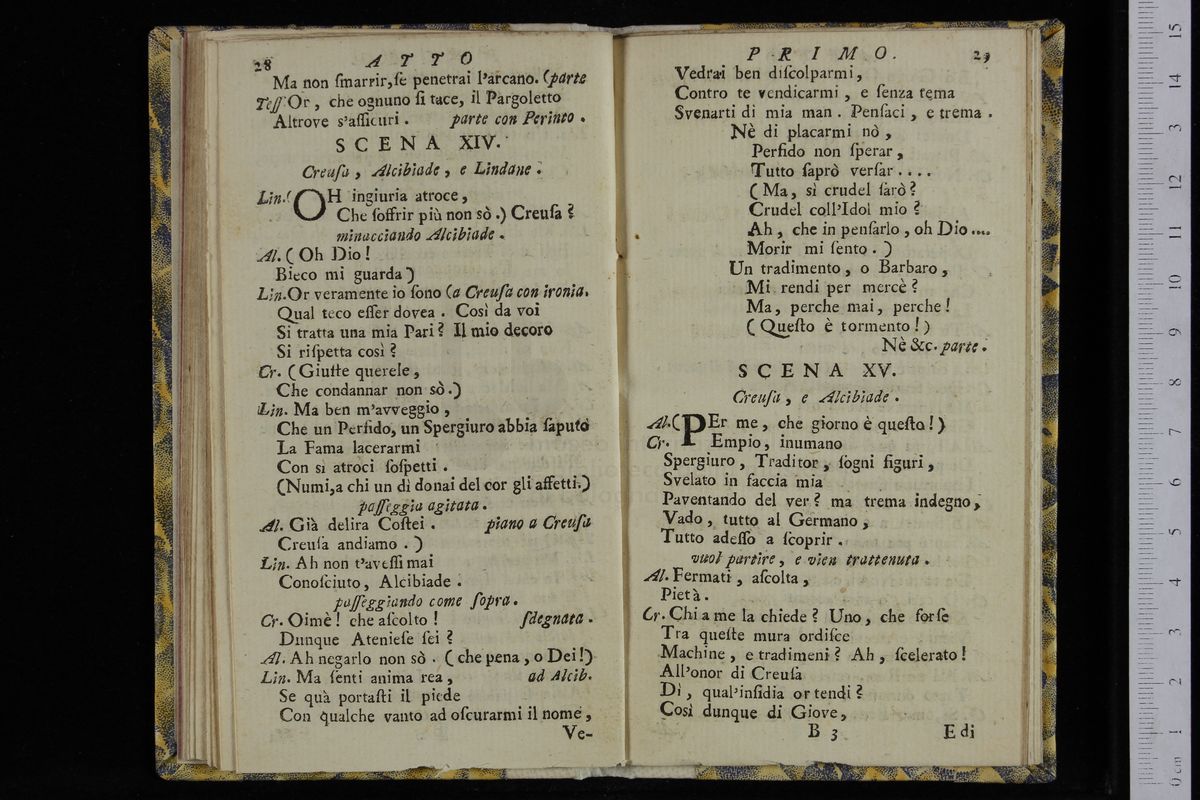 28 ATTO
Ma non ſmarrir, ſe penetrai l'arcano. (parte
Teſſ. Or, che ognuno ſi tace, il Pargoletto
Altrove s'aſſicuri. parte con Perinto.
SCENA XIV.
Creuſa, Alcibiade, e Lindane.
Lin. (OH ingiuria atroce,
Che ſoffrir più non sò.) Creuſa?
minacciando Alcibiade.
Al. (Oh Dio!
Bieco mi guarda)
Lin. Or veramente io ſono (a Creuſa con ironia.
Qual teco eſſer dovea. Così da voi
Si tratta una mia Pari? Il mio decoro
Si riſpetta così?
Cr. (Giuſte querele,
Che condannar non sò.)
Lin. Ma ben m'avveggio,
Che un Perfido, un Spergiuro abbia ſaputo
La Fama lacerarmi
Con sì atroci ſoſpetti.
(Numi, a chi un dì donai del cor gli affetti.)
paſſeggia agitata.
Al. Già delira Coſtei. piano a Creuſa
Creuſa andiamo.)
Lin. Ah non t'aveſſi mai
Conoſciuto, Alcibiade.
paſſeggiando come ſopra.
Cr. Oimè! che aſcolto! ſdegnata.
Dunque Atenieſe ſei?
Al. Ah negarlo non sò. (che pena, o Dei!)
Lin. Ma ſenti anima rea, ad Alcib.
Se quà portaſti il piede
Con qualche vanto ad oſcurarmi il nome,
Ve-
PRIMO. 29
Vedrai ben diſcolparmi,
Contro te vendicarmi, e ſenza tema
Svenarti di mia man. Penſaci, e trema.
Nè di placarmi nò,
Perfido non ſperar,
Tutto ſaprò verſar....
(Ma, sì crudel ſarò?
Crudel coll'Idol mio?
Ah, che in penſarlo, oh Dio....
Morir mi ſento.)
Un tradimento, o Barbaro,
Mi rendi per mercè?
Ma, perche mai, perche!
(Queſto è tormento!)
Nè &c. parte.
SCENA XV.
Creuſa, e Alcibiade.
Al. (PEr me, che giorno è queſto!)
Cr. Empio, inumano
Spergiuro, Traditor, ſogni figuri,
Svelato in faccia mia
Paventando del ver? ma trema indegno,
Vado, tutto al Germano,
Tutto adeſſo a ſcoprir.
vuol partire, e vien trattenuta.
Al. Fermati, aſcolta,
Pietà.
Cr. Chi a me la chiede? Uno, che forſe
Tra queſte mura ordiſce
Machine, e tradimeni? Ah, ſcelerato!
All'onor di Creuſa
Dì, qual'inſidia or tendi?
Così dunque di Giove,
B 3 E di
0 cm 1 2 3 4 5 6 7 8 9 10 11 12 13 14 15